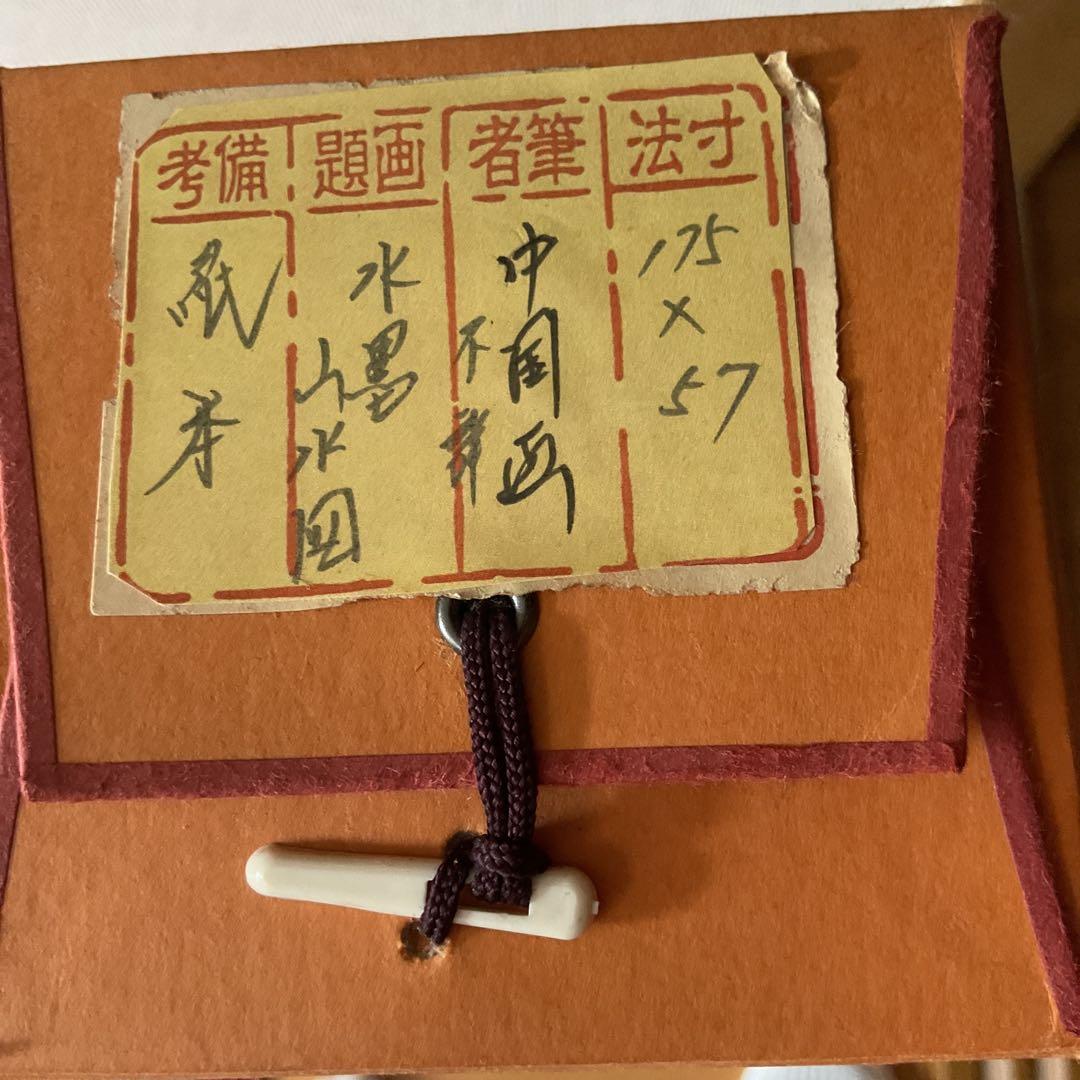 寸法
175
×
57
筆者
中国画
不詳
画題
水墨
山水図
備考
紙本